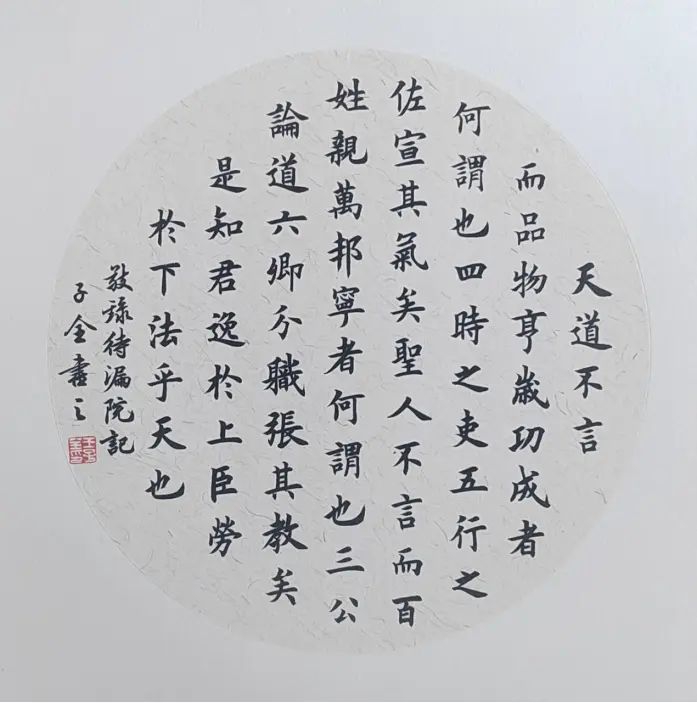 天道不言
而品物亨歲功成者
何謂也四時之吏五行之
佐宣其氣矣聖人不言而百
姓親萬邦寧者何謂也三公
論道六卿分職張其教矣
是知君逸於上臣勞
於下法乎天也
敬録待漏院記
子全書之